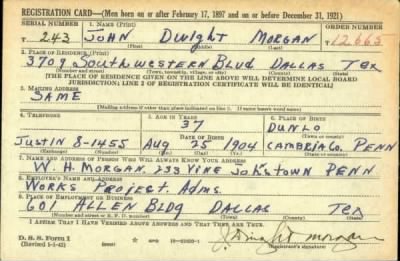 REGISTRATION CARD—(Men born on or after February 17, 1897 and on or before December 31, 1921)
SERIAL NUMBER 1. NAME (Print) ORDER NUMBER
T 243 JOHN Dwight MORGAN 12665
(First) (Middle) (Last)
2. PLACE OF RESIDENCE (Print)
3709 Southwestern Blvd DALLAS Tex
(Number and street) (Town, township, village, or city) (County) (State)
[THE PLACE OF RESIDENCE GIVEN ON THE LINE ABOVE WILL DETERMINE LOCAL BOARD
JURISDICTION; LINE 2 OF REGISTRATION CERTIFICATE WILL BE IDENTICAL]
3. MAILING ADDRESS
SAME
[Mailing address if other than place indicated on line 2. If same insert word same]
4. TELEPHONE 5. AGE IN YEARS 6. PLACE OF BIRTH
37 DUNLO
DATE OF BIRTH (Town or county)
Justin 8-1455 Aug 25 1904 CAMBRIA Co. PENN
(Exchange) (Number) (Mo.) (Day) (Yr.) (State or country)
7. NAME AND ADDRESS OF PERSON WHO WILL ALWAYS KNOW YOUR ADDRESS
W. H. MORGAN, 233 VINE Johstown PENN
8. EMPLOYER'S NAME AND ADDRESS
Works Project. Adms.
9. PLACE OF EMPLOYMENT OR BUSINESS
601 ALLEN BLDG DALLAS Tex
(Number and street or R. F. D. number) (Town) (County) (State)
I AFFIRM THAT I HAVE VERIFIED ABOVE ANSWERS AND THAT THEY ARE TRUE.
D. S. S. Form 1
(Revised 1-1-42) (over) J. Dwight Morgan
(Registrant's signature)